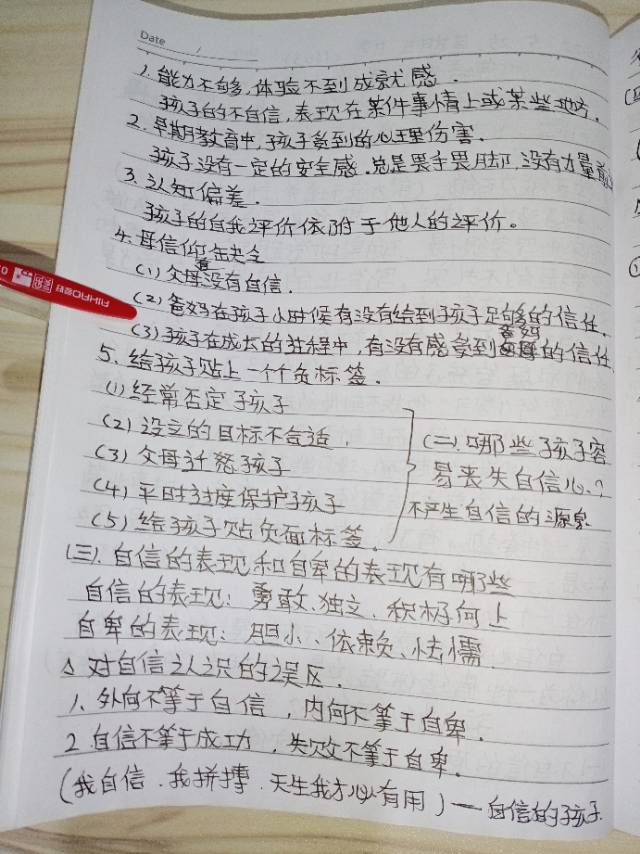 Date /
1. 能力不够,体验不到成就感.
孩子的不自信,表现在某件事情上或某些地方.
2. 早期教育中,孩子受到的心理伤害.
孩子没有一定的安全感.总是畏手畏脚,没有力量
3. 认知偏差.
孩子的自我评价依附于他人的评价。
4. 自信
(1) 父母有没有自信.
(2) 爸妈在孩子小时候有没有给到孩子足够的信任.
(3) 孩子在成长的过程中,有没有感受到爸妈的信任
5. 给孩子贴上一个个负标签.
(1) 经常否定孩子
(2) 设立的目标不合适,
(3) 父母迁怒孩子
(4) 平时过度保护孩子
(5) 给孩子贴负面标签.
(二). 哪些孩子容
易丧失自信心?
不产生自信的源泉
(三). 自信的表现和自卑的表现有哪些
自信的表现: 勇敢、独立、积极向上
自卑的表现: 胆小、依赖、怯懦.
△ 对自信认识的误区.
1、外向不等于自信,内向不等于自卑.
2. 自信不等于成功,失败不等于自卑.
(我自信.我拼搏.天生我才必有用)一自信的孩子
AIHAO爱好